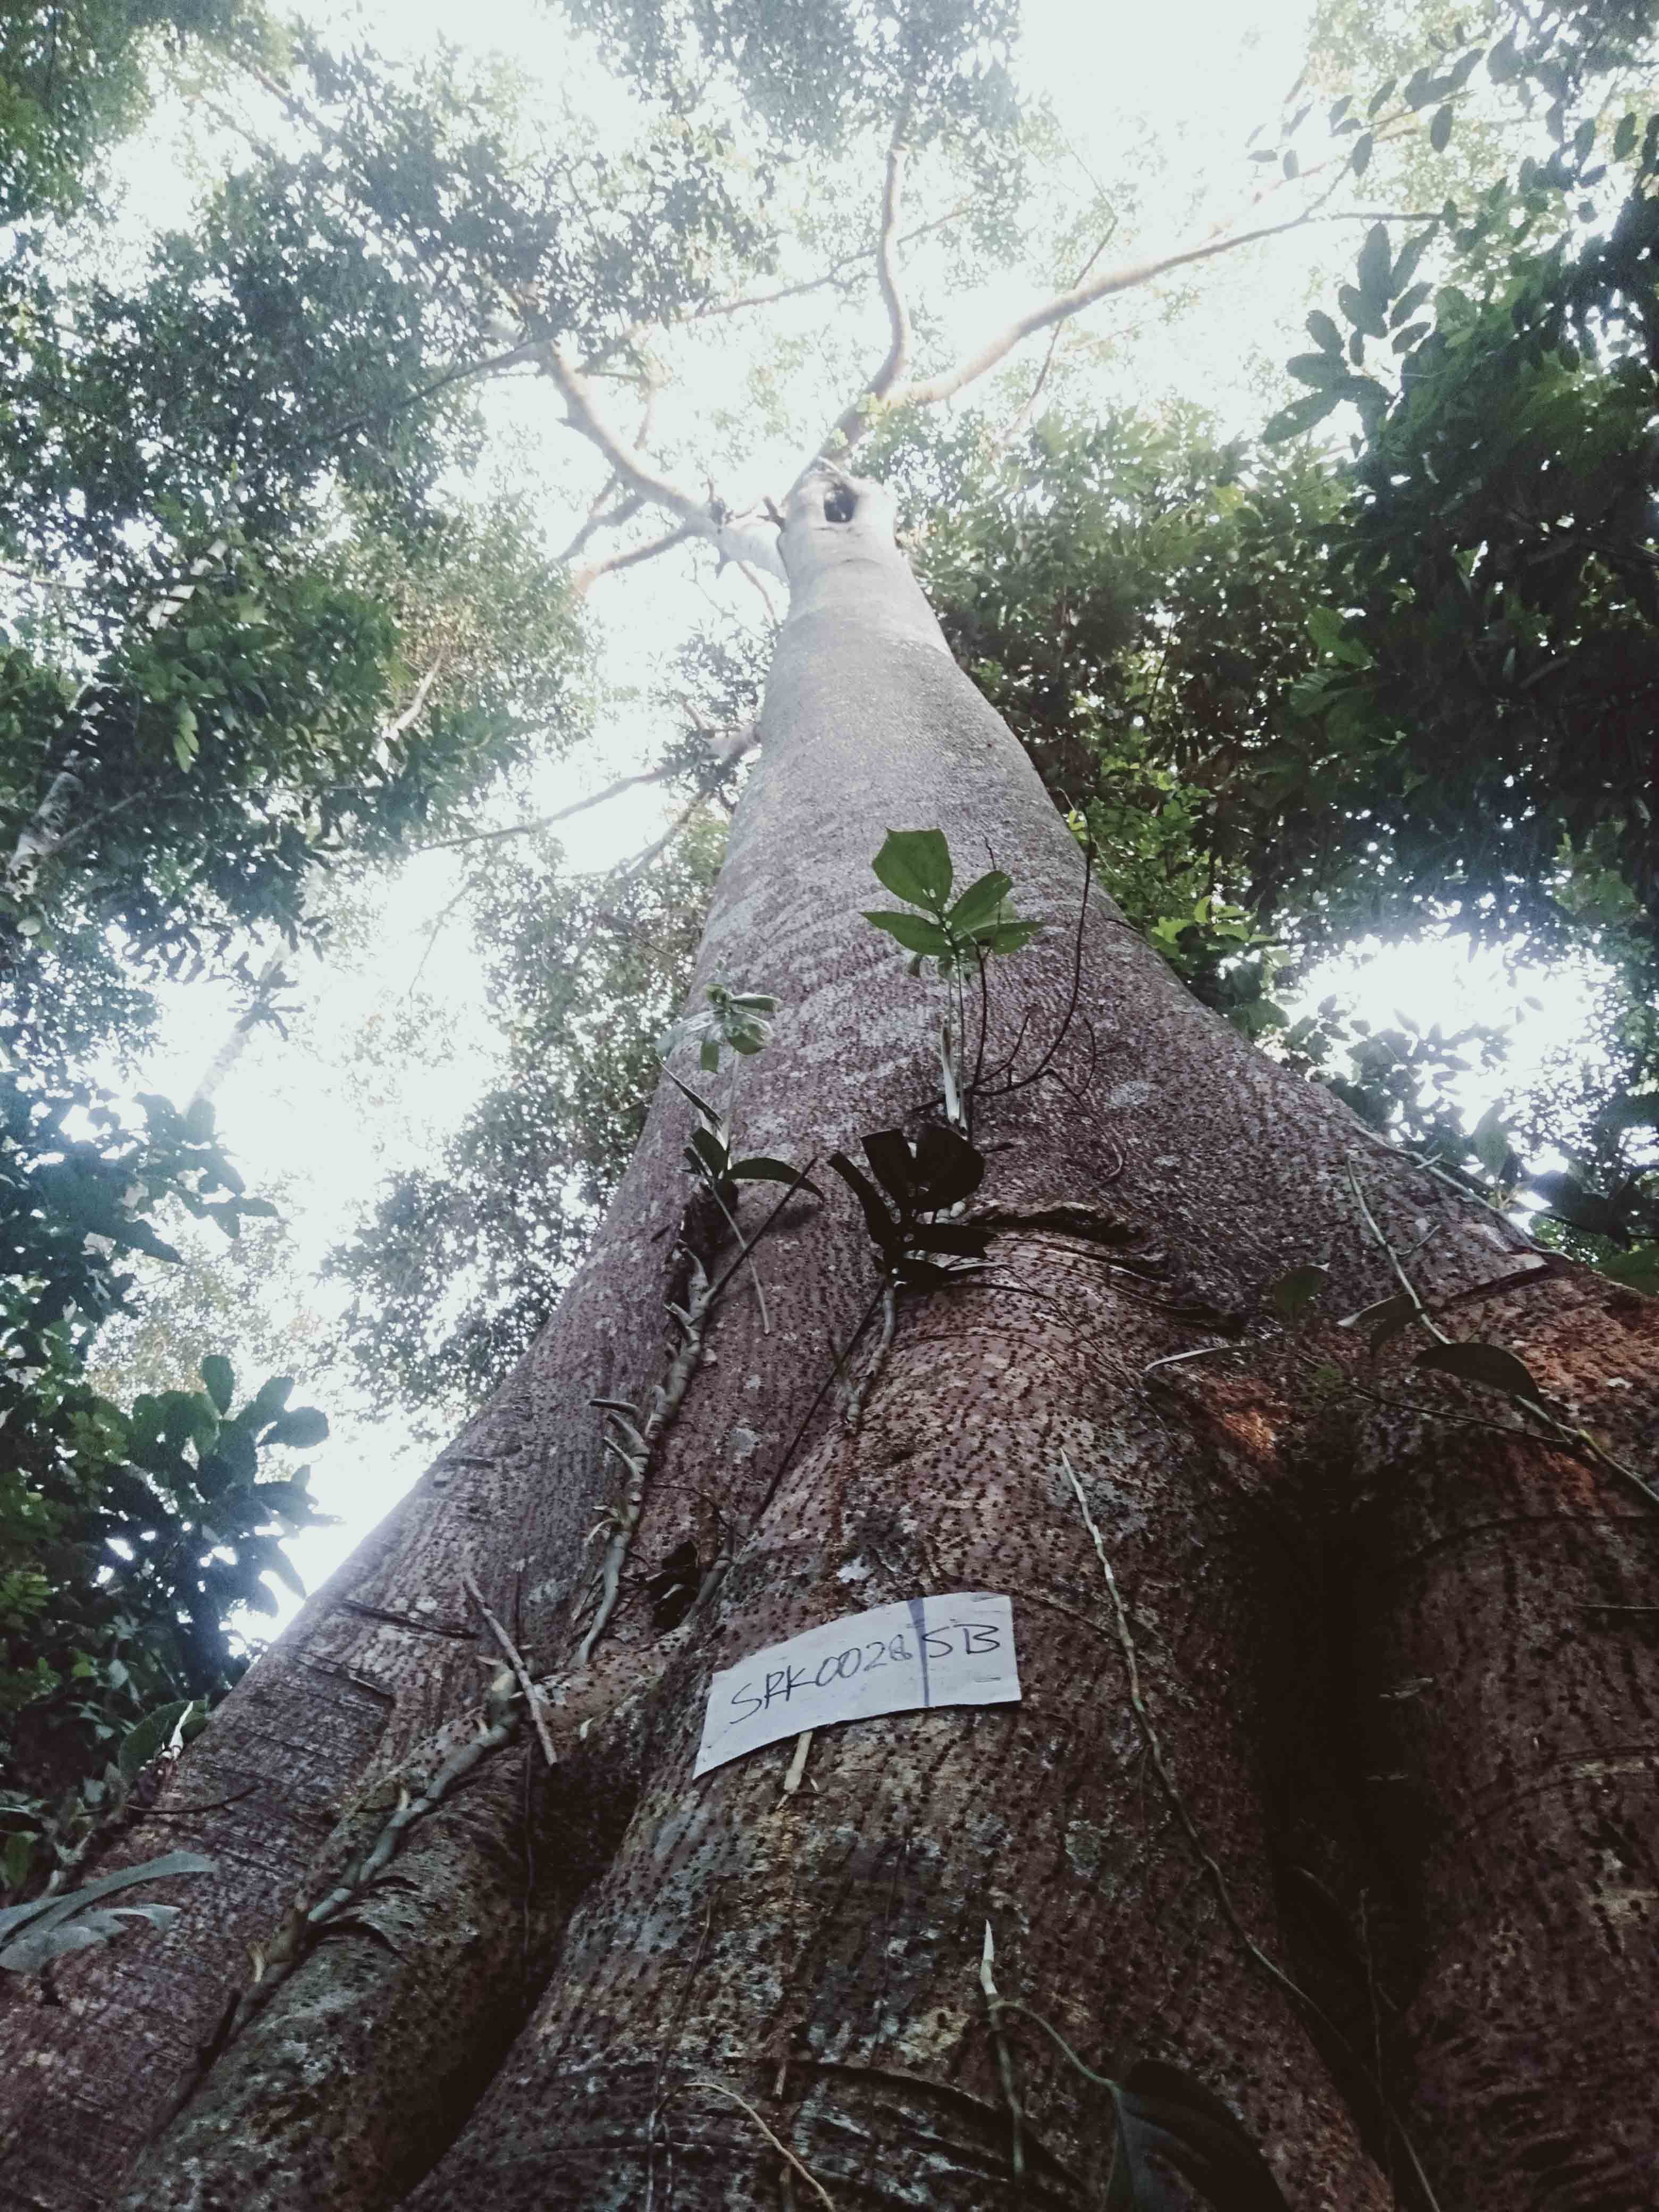 SRK0028 SB